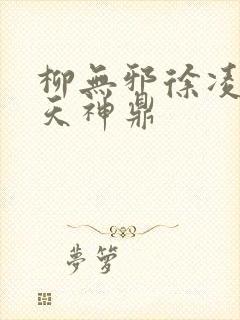 柳無邪徐凌
天神鼎
夢夢